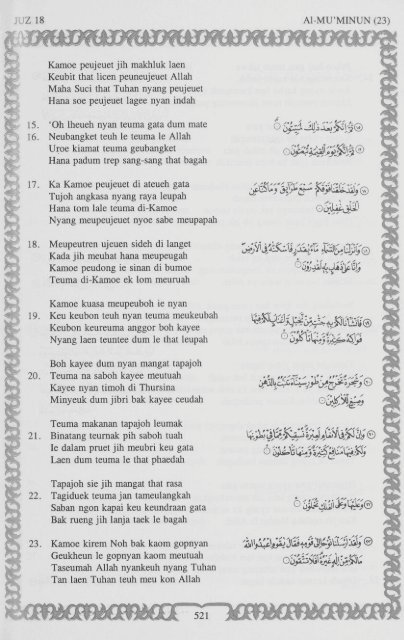 JUZ 18
Al-MU'MINUN (23)
Kamoe peujeuet jih makhluk laen
Keubit that licen peuneujeuet Allah
Maha Suci that Tuhan nyang peujeuet
Hana soe peujeuet lagee nyan indah
15. 'Oh lheueh nyan teuma gata dum mate
ثُمَّ إِنَّكُمْ بَعْدَ ذَٰلِكَ لَمَيِّتُونَ
16. Neubangket teuh le teuma le Allah
Uroe kiamat teuma geubangket
ثُمَّ إِنَّكُمْ يَوْمَ الْقِيَامَةِ تُبْعَثُونَ
Hana padum trep sang-sang that bagah
17. Ka Kamoe peujeuet di ateueh gata
وَلَقَدْ خَلَقْنَا فَوْقَكُمْ سَبْعَ طَرَائِقَ وَمَا كُنَّا عَنِ
Tujoh angkasa nyang raya leupah
الْخَلْقِ غَافِلِينَ
Hana tom lale teuma di-Kamoe
Nyang meupeujeuet nyoe sabe meupapah
18. Meupeutren ujeuen sideh di langet
وَأَنْزَلْنَا مِنَ السَّمَاءِ مَاءً بِقَدَرٍ فَأَسْكَنَّاهُ فِي الْأَرْضِ
Kada jih meuhat hana meupeugah
وَإِنَّا عَلَىٰ ذَهَابٍ بِهِ لَقَادِرُونَ
Kamoe peudong ie sinan di bumoe
Teuma di-Kamoe ek lom meuruah
Kamoe kuasa meupeuboh ie nyan
19. Keu keubon teuh nyan teuma meukeubah
فَأَنْشَأْنَا لَكُمْ بِهِ جَنَّاتٍ مِنْ نَخِيلٍ وَأَعْنَابٍ لَكُمْ فِيهَا
Keubon keureuma anggor boh kayee
فَوَاكِهُ كَثِيرَةٌ وَمِنْهَا تَأْكُلُونَ
Nyang laen teuntee dum le that leupah
Boh kayee dum nyan mangat tapajoh
20. Teuma na saboh kayee meutuah
وَشَجَرَةً تَخْرُجُ مِنْ طُورِ سَيْنَاءَ تَنْبُتُ بِالدُّهْنِ
Kayee nyan timoh di Thursina
وَصِبْغٍ لِلْآكِلِينَ
Minyeuk dum jibri bak kayee ceudah
Teuma makanan tapajoh leumak
21. Binatang teurnak pih saboh tuah
وَإِنَّ لَكُمْ فِي الْأَنْعَامِ لَعِبْرَةً نُسْقِيكُمْ مِمَّا فِي بُطُونِهَا
Ie dalam pruet jih meubri keu gata
وَلَكُمْ فِيهَا مَنَافِعُ كَثِيرَةٌ وَمِنْهَا تَأْكُلُونَ
Laen dum teuma le that phaedah
Tapajoh sie jih mangat that rasa
22. Tagiduek teuma jan tameulangkah
وَعَلَيْهَا وَعَلَى الْفُلْكِ تُحْمَلُونَ
Saban ngon kapai keu keundraan gata
Bak rueng jih lanja taek le bagah
23. Kamoe kirem Noh bak kaom gopnyan
وَلَقَدْ أَرْسَلْنَا نُوحًا إِلَىٰ قَوْمِهِ فَقَالَ يَا قَوْمِ اعْبُدُوا اللَّهَ
Geukheun le gopnyan kaom meutuah
مَا لَكُمْ مِنْ إِلَٰهٍ غَيْرُهُ أَفَلَا تَتَّقُونَ
Taseumah Allah nyankeuh nyang Tuhan
Tan laen Tuhan teuh meu kon Allah
521